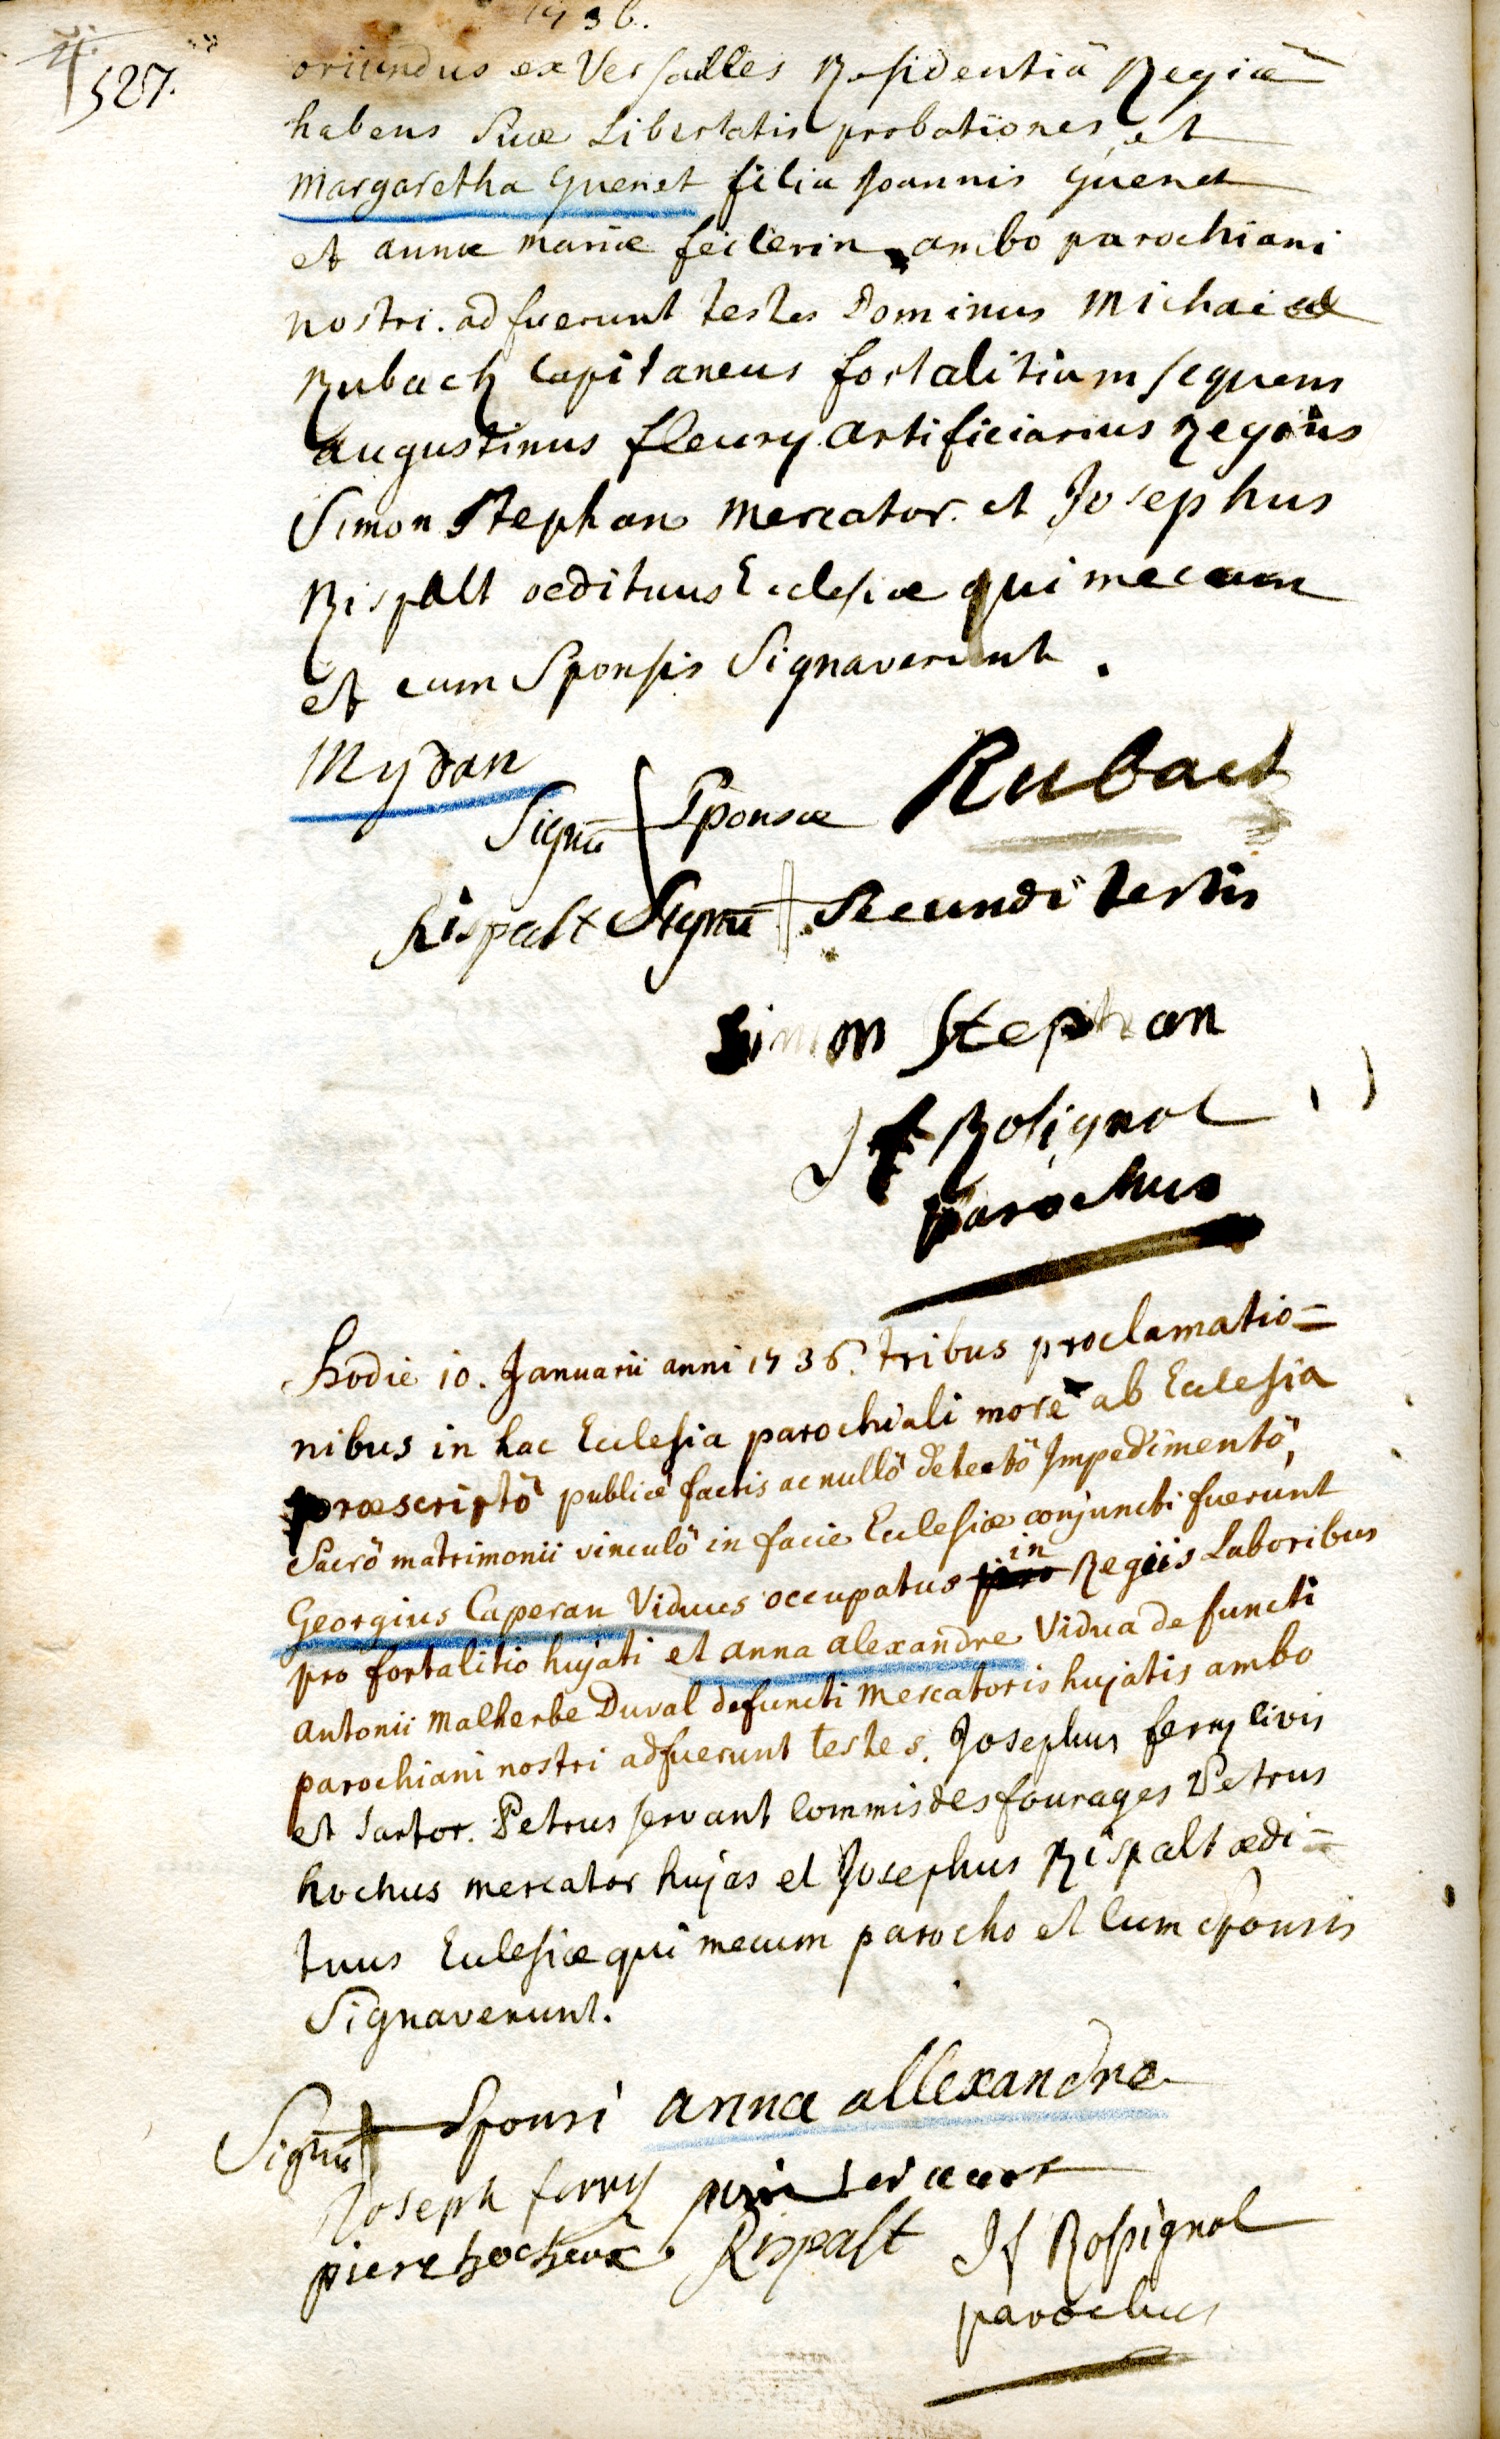 1736.
527.
oriundus ex Versailles Residentiâ Regiâ
habens suae Libertatis probationes, et
Margaretha Guenet filia Joannis Guenet
et annae mariae feilerin ambo parochiani
nostri. adfuerunt testes Dominus Michael
Rubach Capitaneus fortalitium sequens
augustinus fleury artificiarius Regius
Simon Stephan Mercator. et Josephus
Rispalt aedituus Ecclesiae qui mecum
et cum Sponsis Signaverunt.
Mydan
Signū Sponsae Rubach
Rispalt Signū + Secundi testis
Simon Stephan
Jf Rosignol
parochus
Hodie 10. Januarii anni 1736. tribus proclamatio=
nibus in hac Ecclesia parochiali more ab Ecclesia
praescriptô publicè factis ac nullô detectô Impedimentô,
Sacrô matrimonii vinculô in facie Ecclesiae conjuncti fuerunt
Georgius Caperan Viduus occupatus in Regiis Laboribus
pro fortalitio hujati et anna alexandre Vidua defuncti
Antonii Malherbe Duval defuncti Mercatoris hujatis ambo
parochiani nostri adfuerunt testes. Josephus ferry civis
et Sartor. Petrus servant Commis des fourages Petrus
hochus mercator hujas et Josephus Rispalt aedi=
tuus Ecclesiae qui mecum parocho et Cum Sponsis
Signaverunt.
Signū Sponsi anna allexandre
Joseph ferry
piere Rispalt Jf Rossignol
parochus